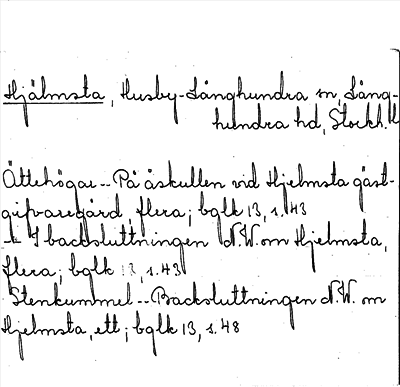 Hjälmsta, Husby-Långhundra sn, Lång-
hundra hd, Stockh. ll
Ättehögar -- På åskullen vid Hjelmsta gäst-
gifvaregård, flera; bglk 13, s. 43
-- I backsluttningen N.W. om Hjelmsta,
flera; bglk 13, s. 43
Stenkummel -- Backsluttningen N.W. om
Hjelmsta, ett; bglk 13, s. 48